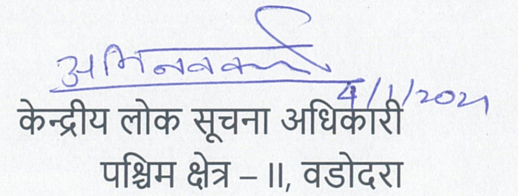 4/1/2021
केन्द्रीय लोक सूचना अधिकारी
पश्चिम क्षेत्र – II, वडोदरा